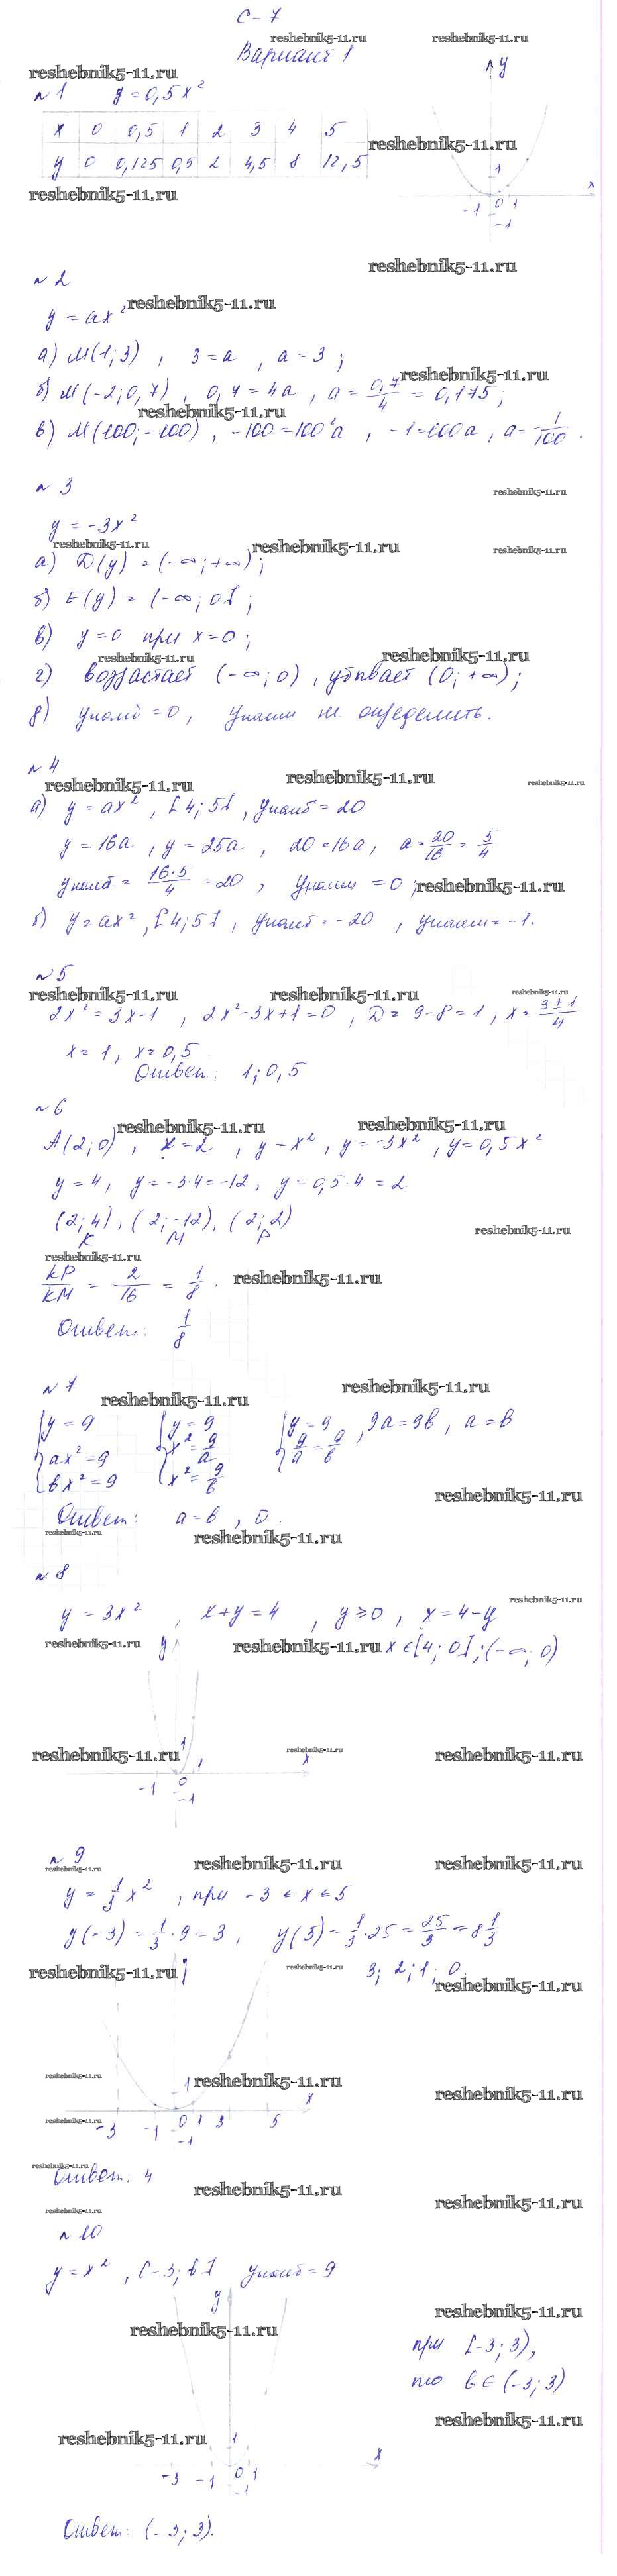 С-7
reshebnik5-11.ru reshebnik5-11.ru
Вариант 1
reshebnik5-11.ru
№1 y = 0,5x²
y
x 0 0,5 1 2 3 4 5
y 0 0,125 0,5 2 4,5 8 12,5
reshebnik5-11.ru
1
x
-1 0 1
-1
reshebnik5-11.ru
reshebnik5-11.ru
№2
y = ax² reshebnik5-11.ru
а) M(1; 3) , 3 = a , a = 3 ;
reshebnik5-11.ru
б) M(-2; 0,7) , 0,7 = 4a , a = 0,7/4 = 0,175 ;
reshebnik5-11.ru
в) M(100; -100) , -100 = 100²a , -1 = 100a , a = -1/100 .
№3
reshebnik5-11.ru
y = -3x²
reshebnik5-11.ru reshebnik5-11.ru reshebnik5-11.ru
а) D(y) = (-∞; +∞) ;
б) E(y) = (-∞; 0] ;
в) y = 0 при x = 0 ;
reshebnik5-11.ru reshebnik5-11.ru
г) возрастает (-∞; 0) , убывает (0; +∞) ;
д) yнаиб = 0 , yнаим не определить.
№4
reshebnik5-11.ru reshebnik5-11.ru reshebnik5-11.ru
а) y = ax² , [4; 5] , yнаиб = 20
y = 16a , y = 25a , 20 = 16a , a = 20/16 = 5/4
yнаиб. = 16·5/4 = 20 , yнаим = 0 ; reshebnik5-11.ru
б) y = ax² , [4; 5] , yнаиб = -20 , yнаим = -1.
№5
reshebnik5-11.ru reshebnik5-11.ru reshebnik5-11.ru
2x² = 3x-1 , 2x²-3x+1 = 0 , D = 9-8 = 1 , x = 3±1/4
x = 1 , x = 0,5 .
Ответ: 1; 0,5
№6
reshebnik5-11.ru reshebnik5-11.ru
A(2; 0) , x = 2 , y = x² , y = -3x² , y = 0,5x²
y = 4 , y = -3·4 = -12 , y = 0,5·4 = 2
(2; 4) , (2; -12) , (2; 2)
K M P
reshebnik5-11.ru
reshebnik5-11.ru
KP/KM = 2/16 = 1/8 . reshebnik5-11.ru
Ответ: 1/8
№7
reshebnik5-11.ru reshebnik5-11.ru
y = 9 y = 9 y = 9
ax² = 9 x² = 9/a 9/a = 9/b , 9a = 9b , a = b
bx² = 9 x² = 9/b
reshebnik5-11.ru
Ответ: a = b , 0 .
reshebnik5-11.ru reshebnik5-11.ru
№8
y = 3x² , x+y = 4 , y ≥ 0 , x = 4-y
reshebnik5-11.ru
reshebnik5-11.ru y reshebnik5-11.ru x ∈ [4; 0] ; (-∞; 0)
reshebnik5-11.ru 1 reshebnik5-11.ru reshebnik5-11.ru
1 x
-1 0
-1
№9
reshebnik5-11.ru reshebnik5-11.ru reshebnik5-11.ru
y = 1/3 x² , при -3 ≤ x ≤ 5
y(-3) = 1/3·9 = 3 , y(5) = 1/3·25 = 25/3 = 8 1/3
reshebnik5-11.ru reshebnik5-11.ru 3; 2; 1; 0.
reshebnik5-11.ru
reshebnik5-11.ru 1 reshebnik5-11.ru reshebnik5-11.ru
x
reshebnik5-11.ru
-3 -1 0 1 3 5
-1
reshebnik5-11.ru
Ответ: 4
reshebnik5-11.ru reshebnik5-11.ru
reshebnik5-11.ru
№10
y = x² , [-3; b] yнаиб = 9
y
reshebnik5-11.ru
reshebnik5-11.ru
при [-3; 3),
то b ∈ (-3; 3)
reshebnik5-11.ru
reshebnik5-11.ru 1
x
-3 -1 0 1
-1
Ответ: (-3; 3).